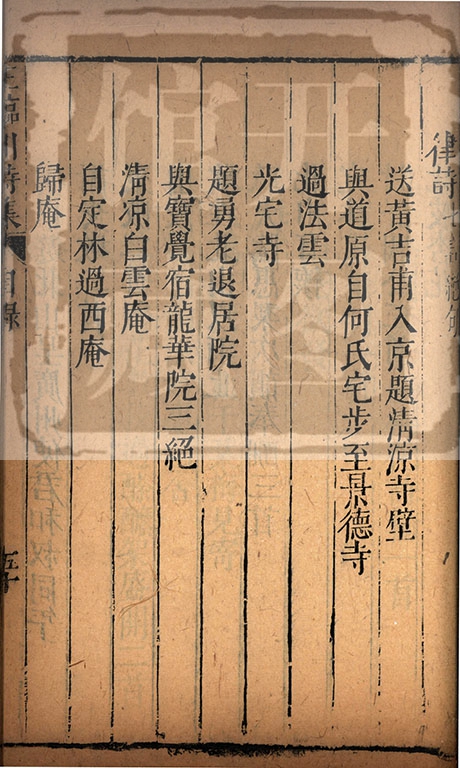 律詩 七言絕句
送黃吉甫入京題清涼寺壁
與道原自何氏宅步至景德寺
過法雲
光宅寺
題勇老退居院
與寶覺宿龍華院三絕
清凉白雲庵
自定林過西庵
歸庵
王臨川詩集 目錄 五十